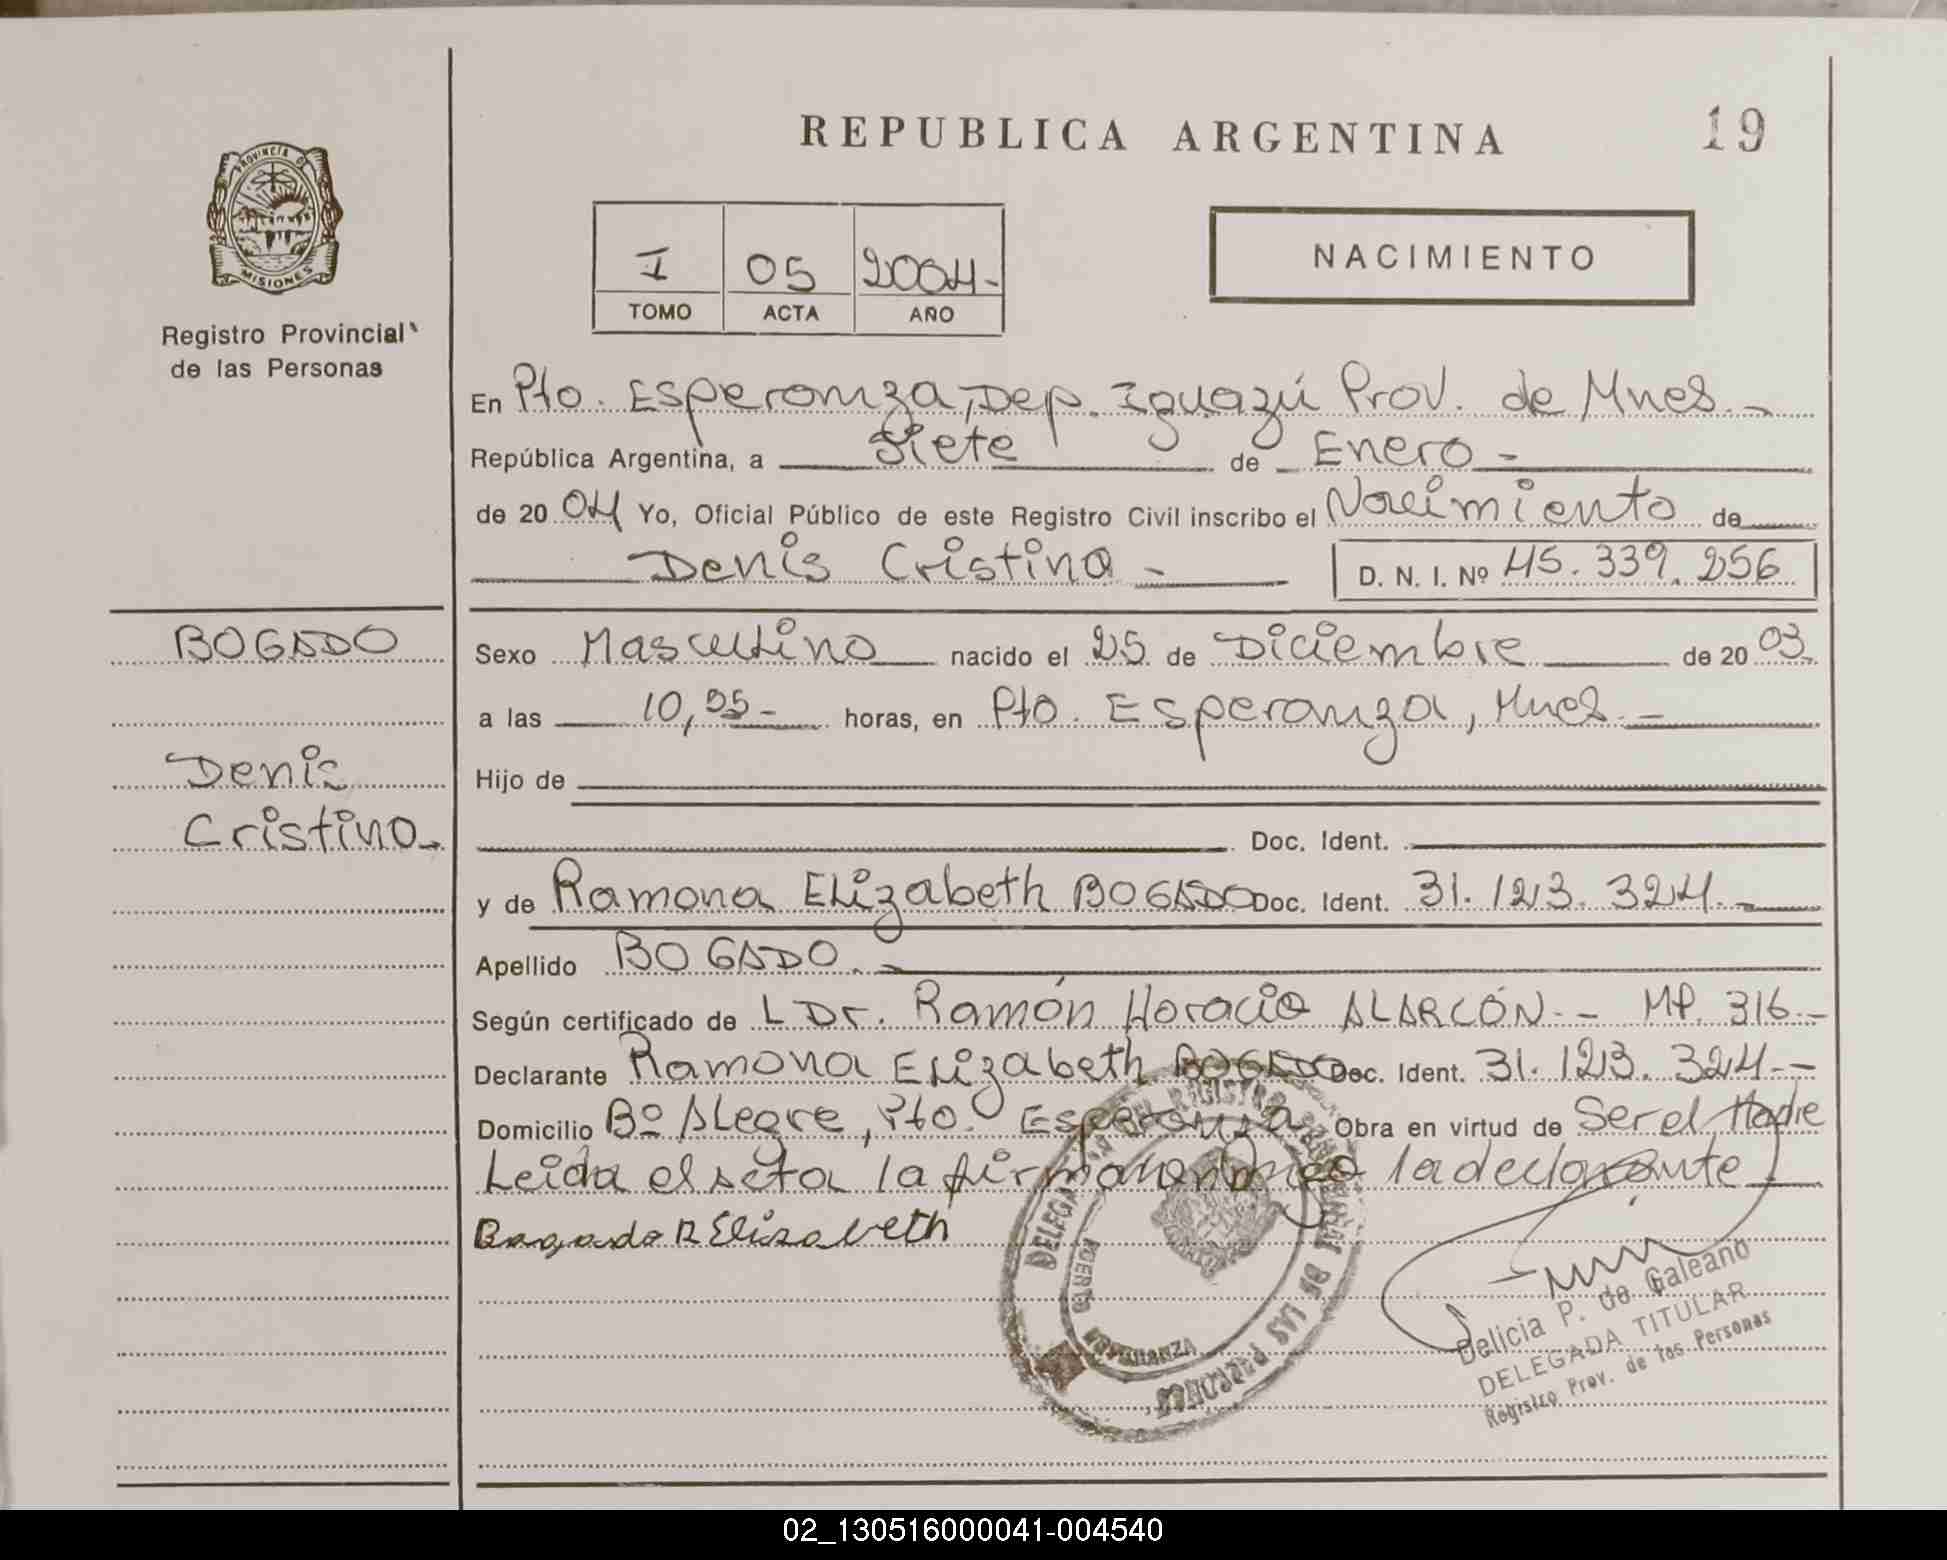 REPUBLICA ARGENTINA
19
PROVINCIA DE
MISIONES
Registro Provincial
de las Personas
I
05
2004-
TOMO
ACTA
AÑO
NACIMIENTO
En Pto. Esperanza, Dep. Iguazú Prov. de Mnes.-
República Argentina, a Siete de Enero -
de 20 04 Yo, Oficial Público de este Registro Civil inscribo el Nacimiento de
Denis Cristino - D. N. I. Nº 45.339.256
BOGADO
Denis
Cristino.
Sexo Masculino nacido el 25 de Diciembre de 20 03.
a las 10,55- horas, en Pto. Esperanza, Mnes.-
Hijo de
Doc. Ident.
y de Ramona Elizabeth BOGADO Doc. Ident. 31.123.324.-
Apellido BOGADO.-
Según certificado de L Dr. Ramón Horacio ALARCÓN.- MP. 316.-
Declarante Ramona Elizabeth BOGADO Doc. Ident. 31.123.324.-
Domicilio Bº Alegre, Pto. Esperanza Obra en virtud de Ser el Madre
Leida el acta la firman conmigo la declarante
Bogado R Elizabeth
DELEGACION REGISTRO PROVINCIAL DE LAS PERSONAS
PUERTO ESPERANZA
Delicia P. de Galeano
DELEGADA TITULAR
Registro Prov. de las Personas
02_130516000041-004540